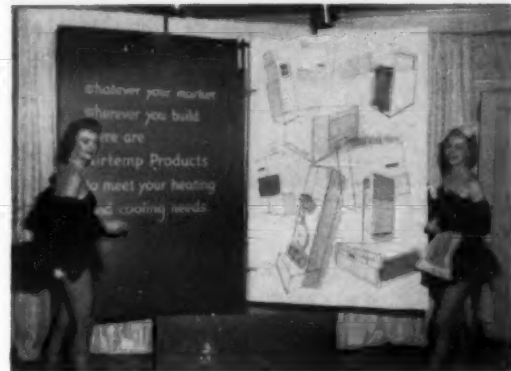 whatever your market
wherever you build
there are
Airtemp Products
to meet your heating
and cooling needs.